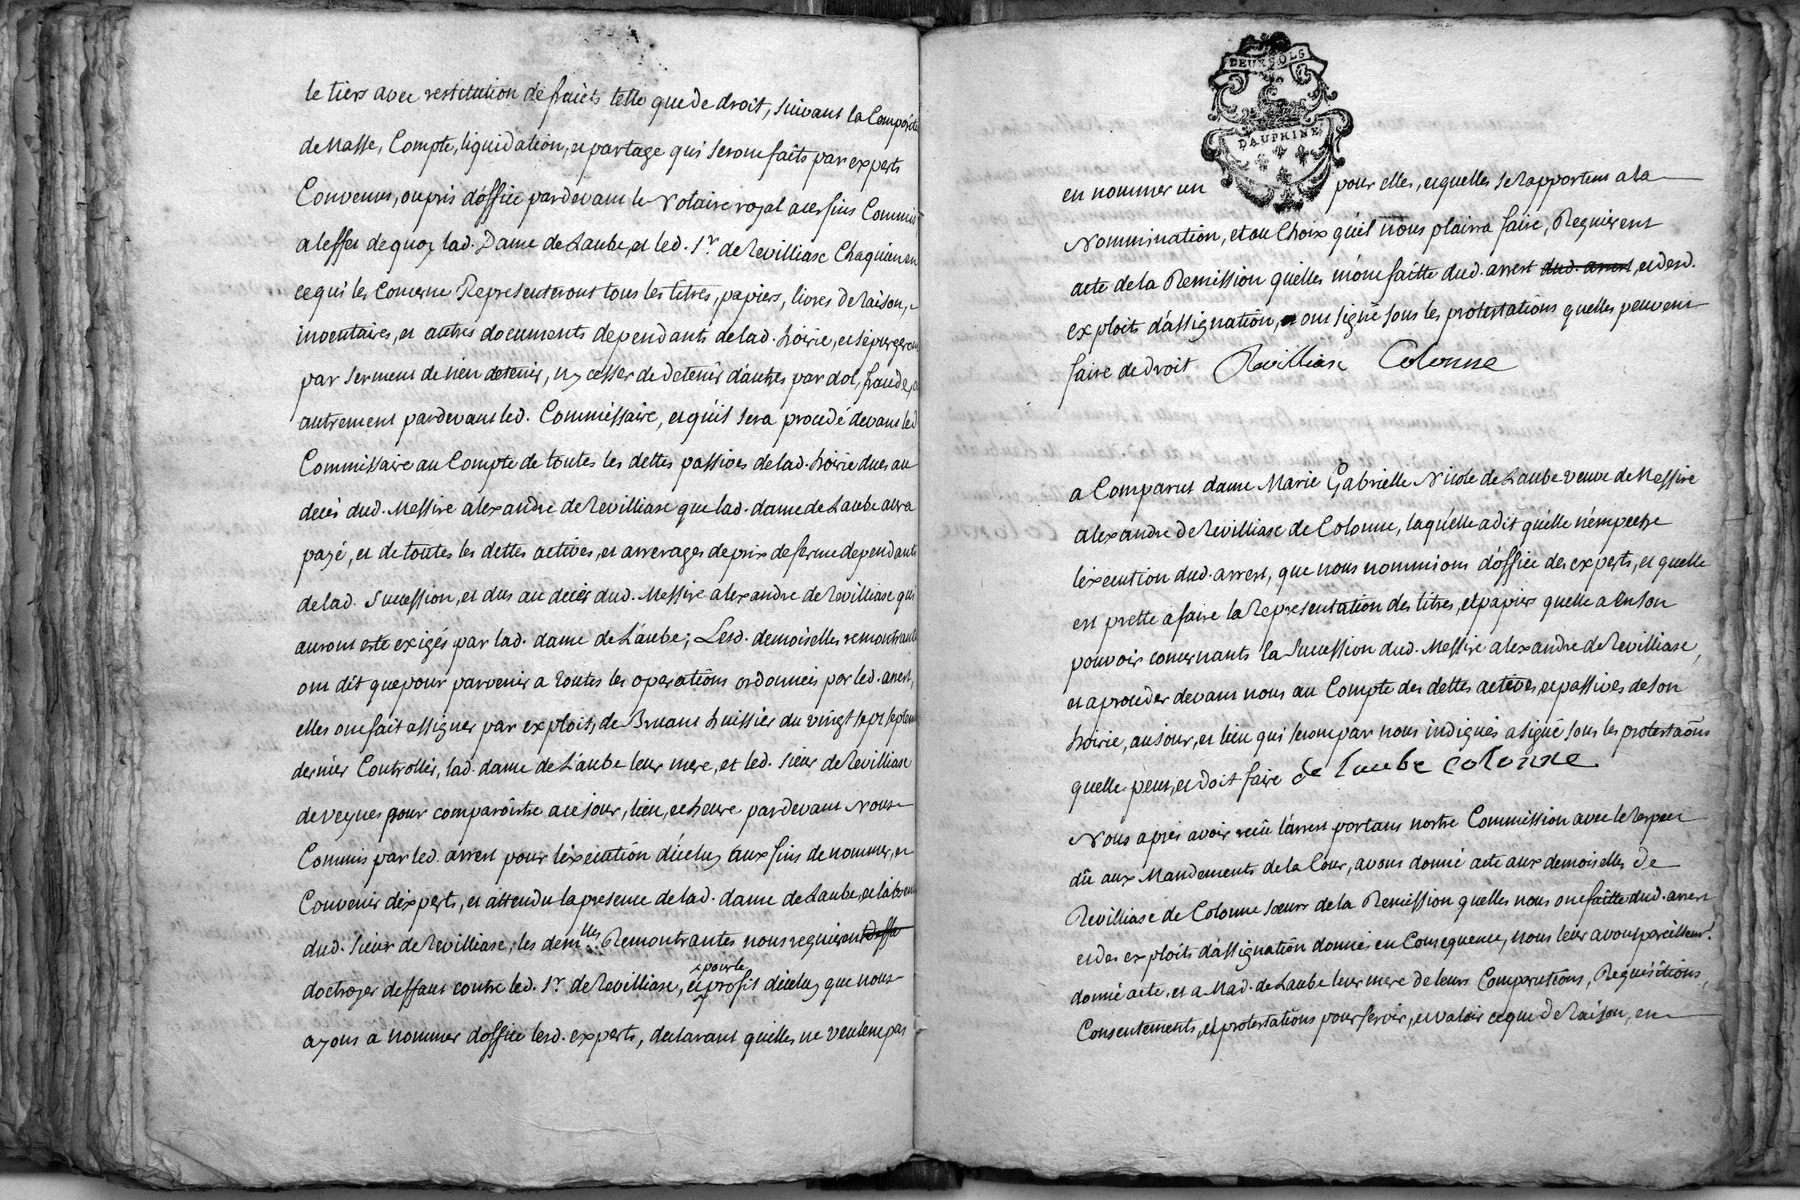 le tiers avec restitution de fruits telle que de droit, suivant la Composit
de Masse, Compte, liquidation, et partage qui seront faits par experts
Convenus, ou pris d'office pardevant le Notaire royal a ces fins Commis
a leffet de quoy lad. Dame de Laube, et led. Sr. de Revilliasc Chaqu'un en
ce qui les Concerne Representeront tous les titres, papiers, livres de Raison,
inventaires, et autres documents dependants de lad. hoirie, et se purgeront
par serment de n'en detenir, ny cesser de detenir d'autres par dol, fraude, ou
autrement pardevant led. Commissaire, et qu'il sera procedé devant led
Commissaire au Compte de toutes les dettes passives de lad. hoirie dues au
decés dud. Messire alexandre de Revilliasc que lad. dame de Laube aura
payé, et de toutes les dettes actives, et arrerages de prix de ferme dependants
de lad. Succession, et dus au decés dud. Messire alexandre de Revilliasc qui
auront esté exigés par lad. dame de Laube; Lesd. demoiselles remontrantes
ont dit que pour parvenir a toutes les operations ordonnées par led. arrest,
elles ont fait assigner par exploits de Bruant huissier du vingt sept septembre
dernier Controllés, lad. dame de Laube leur mere, et led. sieur de Revilliasc
de veynes pour comparoistre a ce jour, lieu, et heure pardevant Nous
Commis par led. arrest pour l'execution d'icelluy aux fins de nommer, et
Convenir d'experts, et attendu la presence de lad. dame de Laube, et l'absence
dud. sieur de Revilliasc, les demlles. Remontrantes nous requierent deffa
d'octroyer deffaut contre led. Sr. de Revilliasc, et pour le profit d'icelluy que nous
ayons a nommer d'office lesd. experts, declarant qu'elles ne veulent pas
DEUX SOLS
DAUPHINE
en nommer un pour elles, et quelles se rapportent a la
Nommination, et au Choix qu'il nous plaira faire, Requierent
acte de la Remission qu'elles m'ont faitte dud. arrest dud. arrest, et desd.
exploits d'assignation, et ont signé sous les protestations quelles peuvent
faire de droit Revilliasc Colonne
a Comparut dame Marie Gabrielle Nicole de Laube veuve de Messire
alexandre de Revilliasc de Colonne, laquelle a dit qu'elle n'empeche
l'execution dud. arrest, que nous nommions d'office des experts, et quelle
est prette a faire la Representation des titres, et papiers quelle a en son
pouvoir concernants la succession dud. Messire alexandre de Revilliasc,
et a proceder devant nous au Compte des dettes actives, et passives de son
hoirie, au jour, et lieu qui seront par nous indiqués a signé sous les protestaons
quelle peut, et doit faire de Laube colonne
Nous aprés avoir receu l'arrest portant nostre Commission avec le Respect
dû aux Mandements de la Cour, avons donné acte aux demoiselles de
Revilliasc de Colonne sœurs de la Remission quelles nous ont faitte dud. arrest
et des exploits d'assignation donnés en Consequence, nous leur avons pareillemt.
donné acte, et a Mad. de Laube leur mere de leurs Comparutions, Requisitions,
Consentements, et protestations pour servir, et valoir ce que de Raison, en